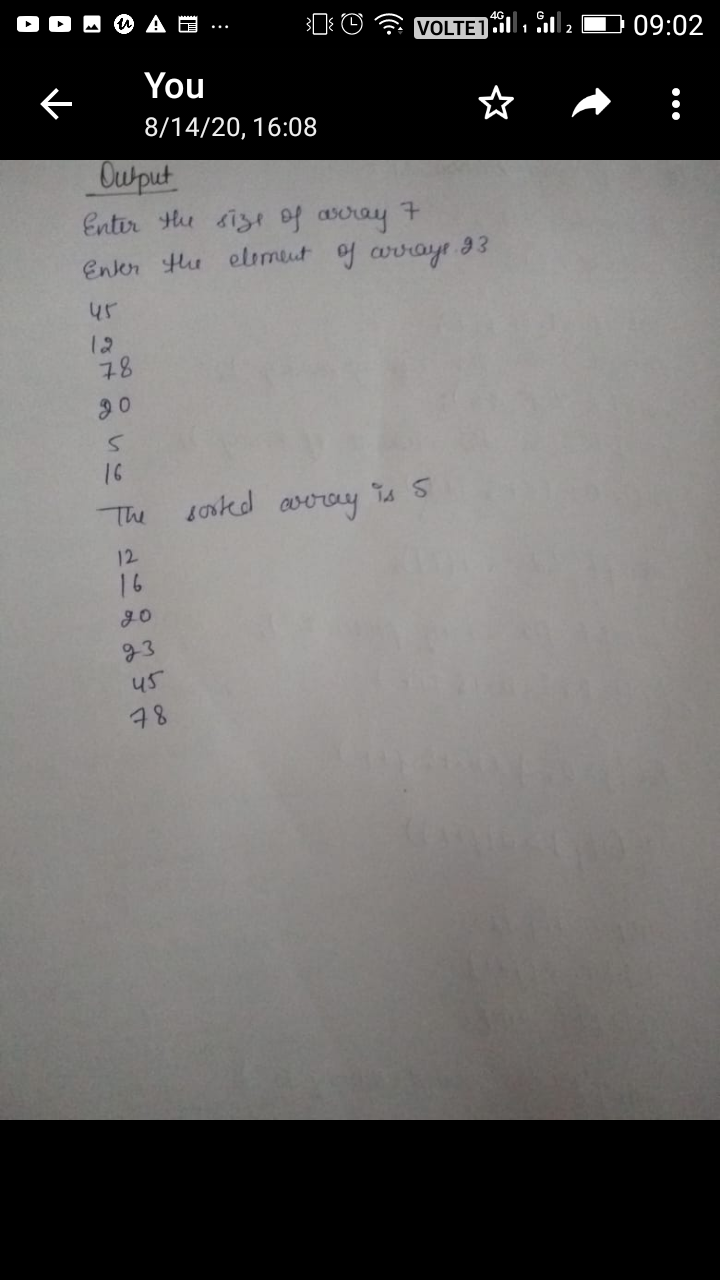 VOLTE1 4G 1 G 2 09:02
You
8/14/20, 16:08
Output
Enter the size of array 7
Enter the element of arrays 23
45
12
78
20
5
16
The sorted array is 5
12
16
20
23
45
78